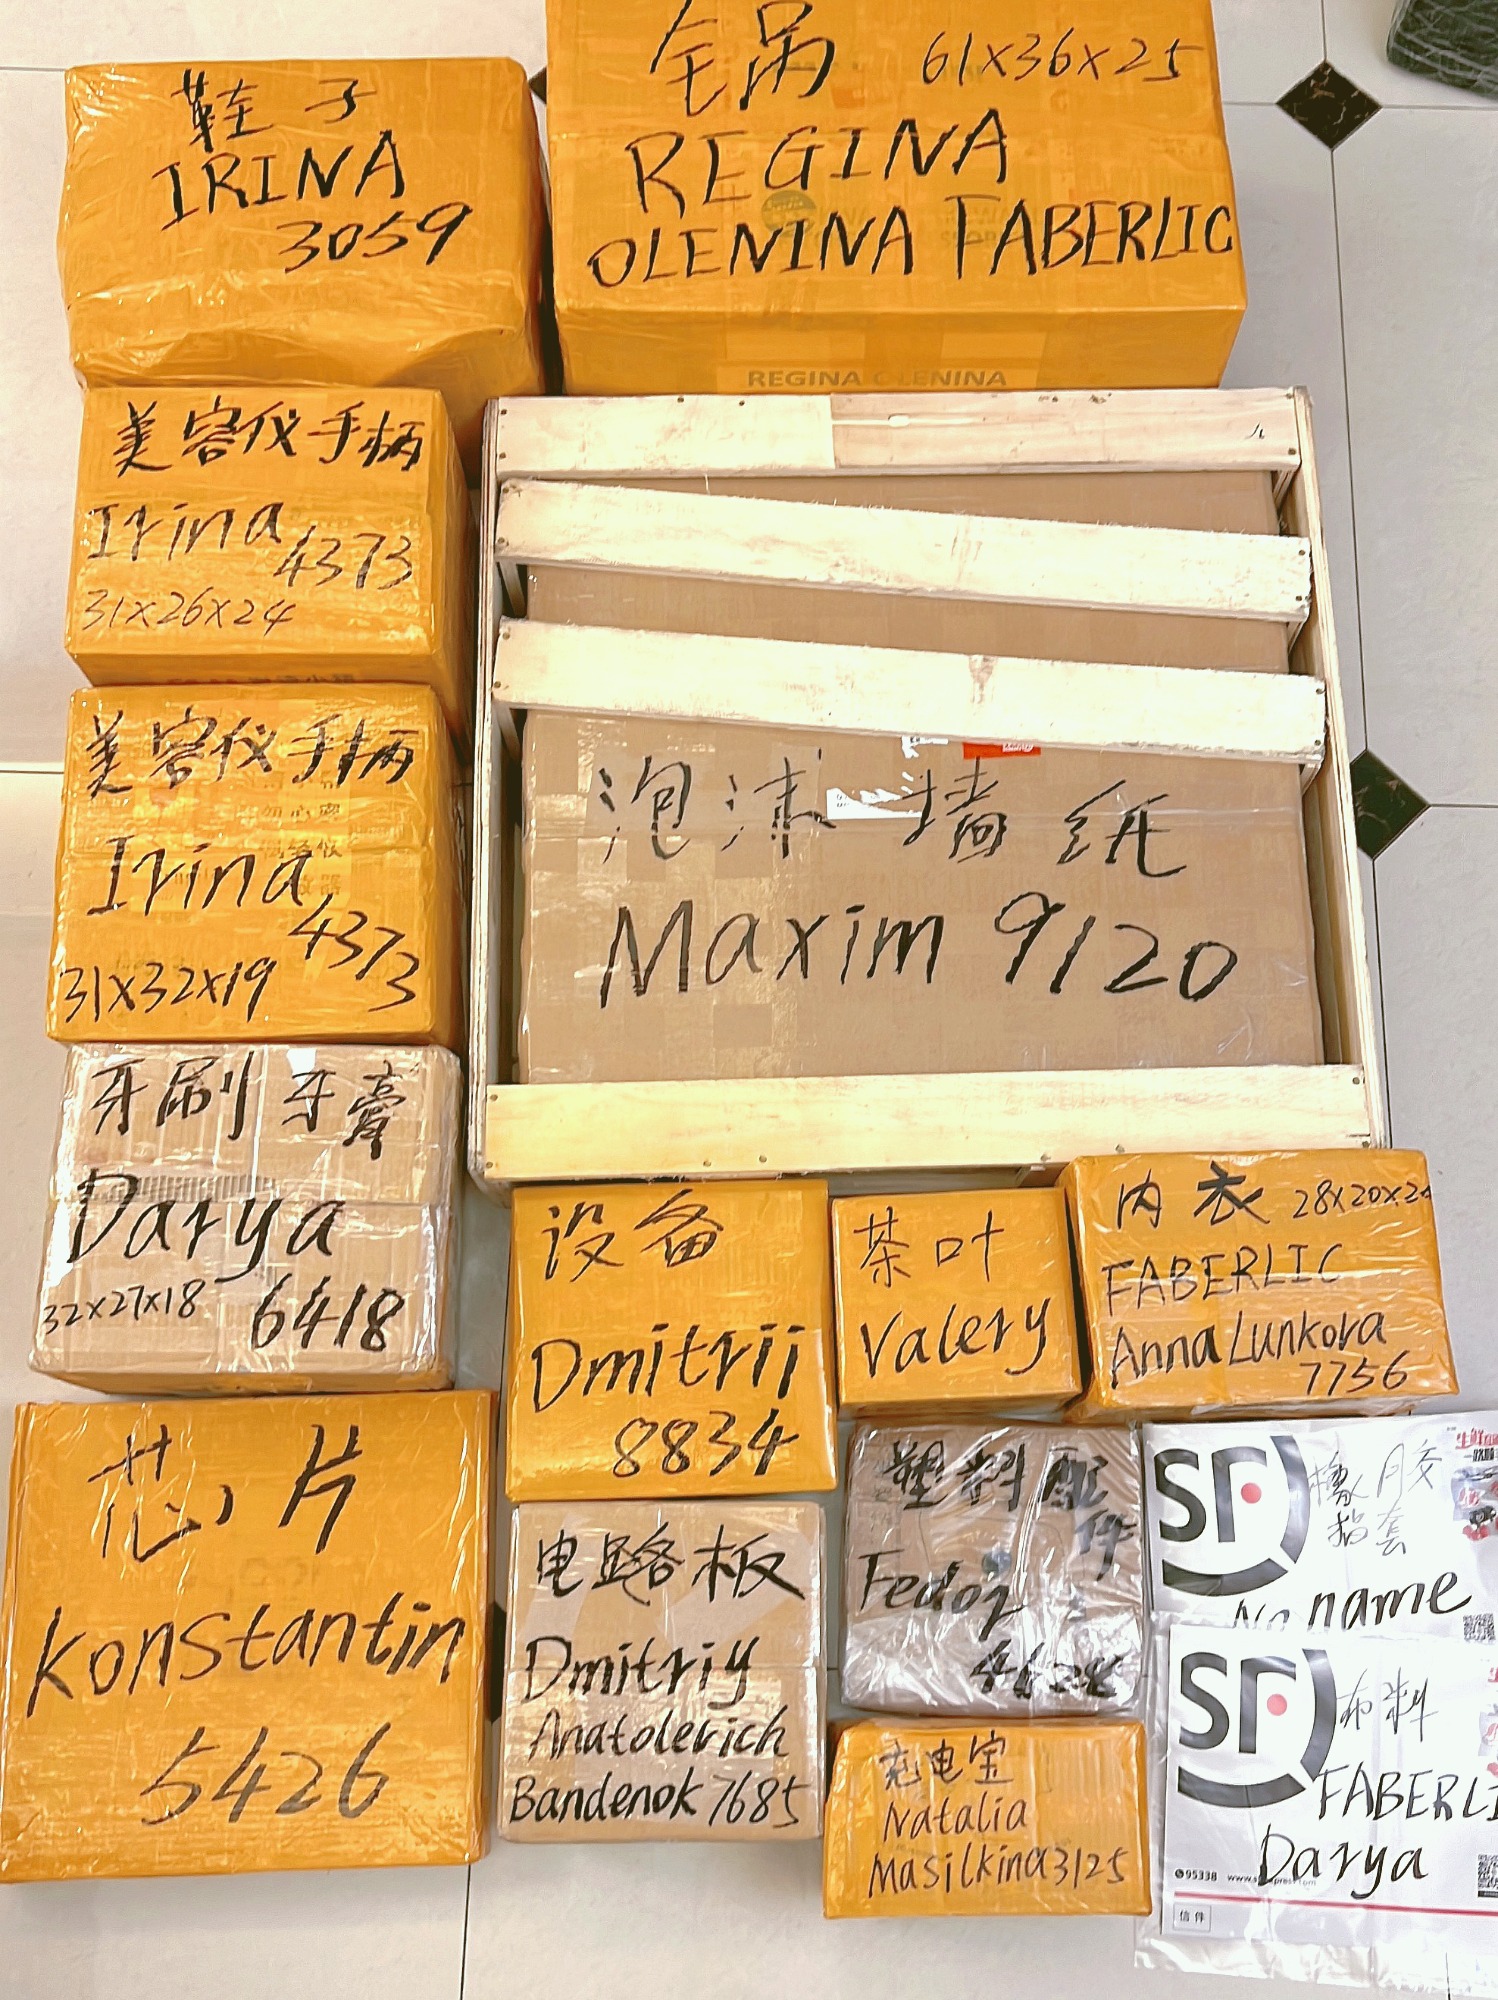 鞋子
IRINA
3059
61x36x25
REGINA
OLENINA FABERLIC
REGINA OLENINA
美容仪手柄
Irina
4373
31x26x24
美容仪手柄
Irina
4373
31x32x19
泡沫墙纸
Maxim 9120
牙刷牙膏
Darya
32x27x18
6418
设备
Dmitrii
8834
茶叶
Valery
内衣
28x20x24
FABERLIC
Anna Lunkova
7756
芯片
Konstantin
5426
电路板
Dmitriy
Anatolevich
Bandenok 7685
塑料配件
Fedor
4628
充电宝
Natalia
Masilkina 3125
SF
橡胶
指套
No name
SF
布料
FABERLI
Darya
95338
信件